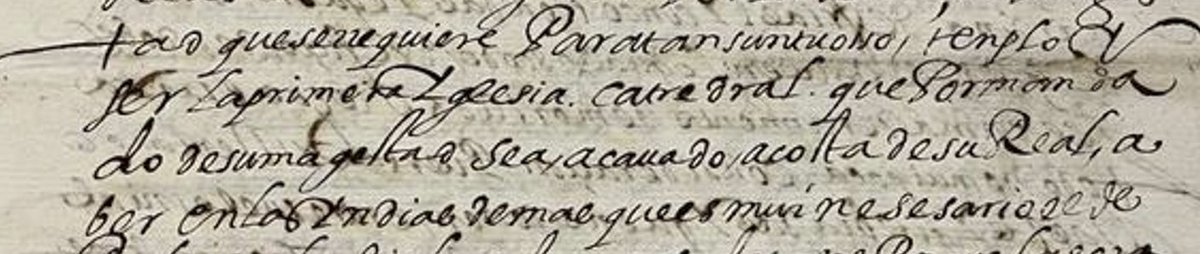 tad que se rrequiere Para tan suntuosso, tenplo Y
ser la primera Yglesia. catredral. que Por manda
do de su magestad sea, acauado, acosta de su Real, a
ber en las Yndias demas que es mui nesesario se de